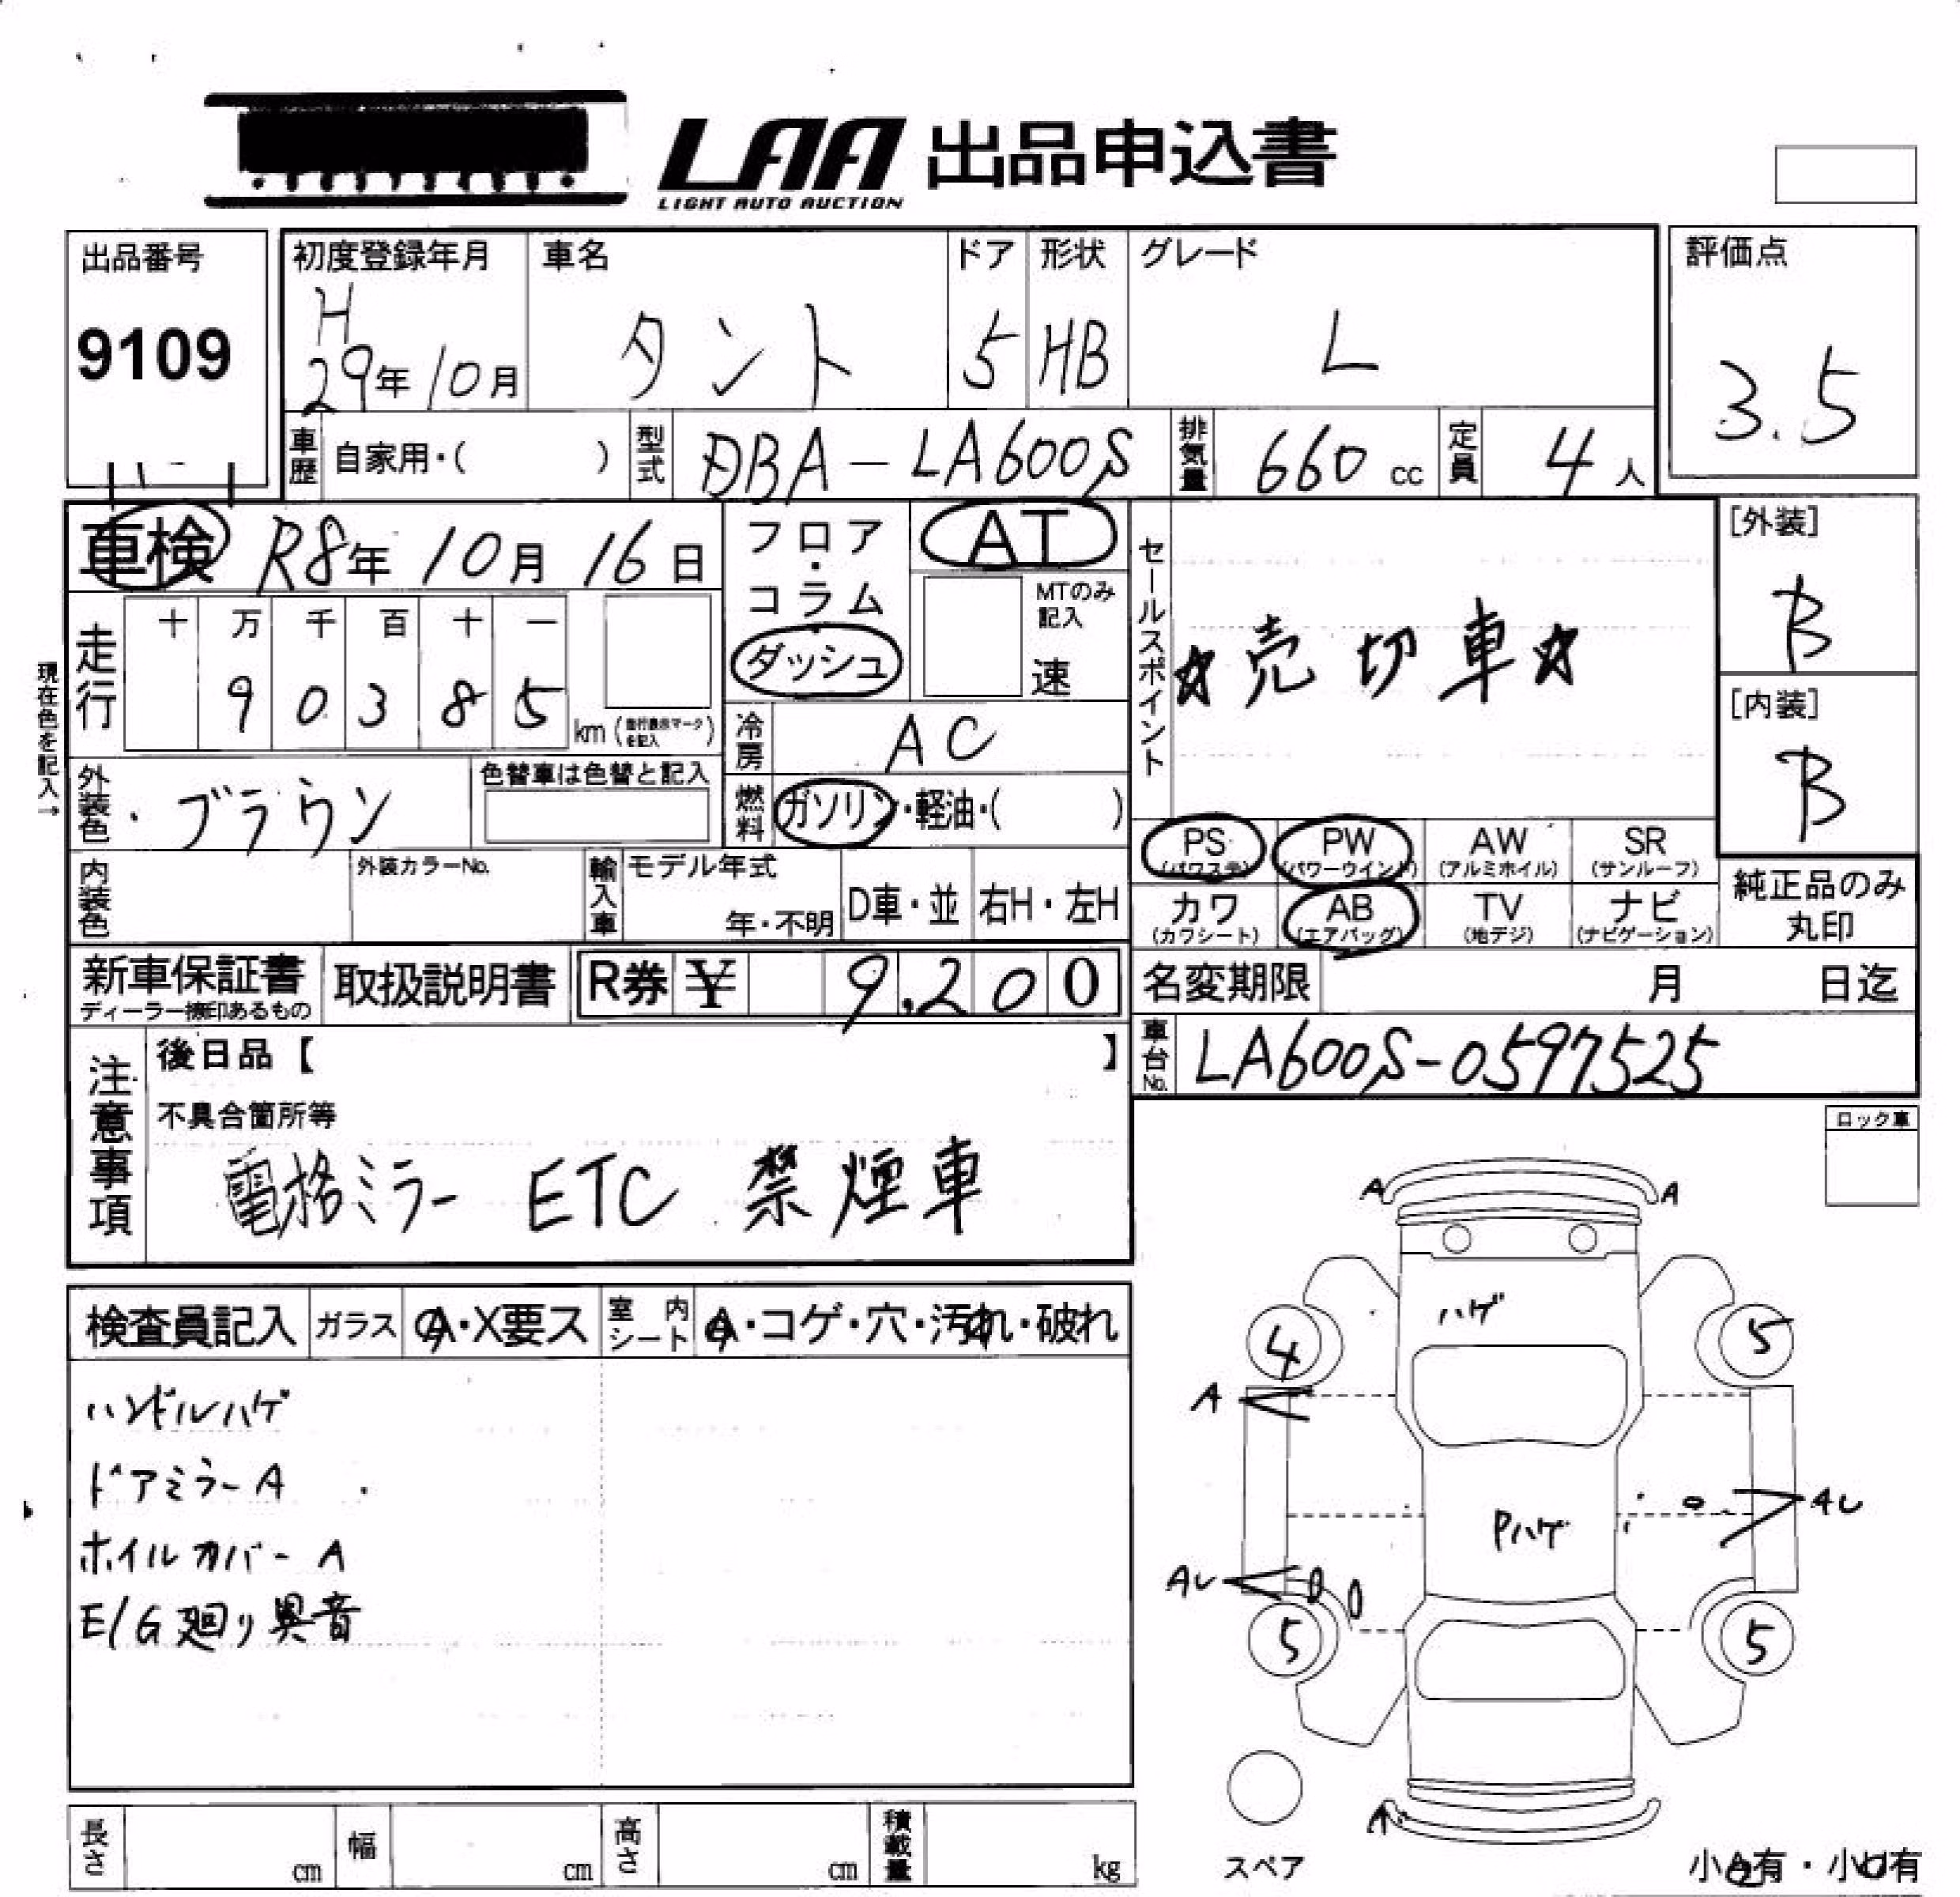 LAA 出品申込書
LIGHT AUTO AUCTION
出品番号
9109
初度登録年月
H
29年10月
車名
タント
ドア
5
形状
HB
グレード
L
評価点
3.5
車歴 自家用・( )
型式 DBA-LA600S
排気量 660 cc
定員 4人
車検 R8年10月16日
フロア・コラム・ダッシュ
AT
MTのみ記入
速
セールスポイント
☆売切車☆
[外装]
B
[内装]
B
現在色を記入→
走行 十 万 千 百 十 一
9 0 3 8 5 km
冷房 AC
外装色 ・ブラウン
色替車は色替と記入
燃料 ガソリン・軽油・( )
PS (パワステ)
PW (パワーウインド)
AW (アルミホイル)
SR (サンルーフ)
カワ (カワシート)
AB (エアバッグ)
TV (地デジ)
ナビ (ナビゲーション)
純正品のみ丸印
内装色
外装カラーNo.
輸入車
モデル年式
年・不明
D車・並
右H・左H
新車保証書
ディーラー捺印あるもの
取扱説明書
R券 ¥ 9,200
名変期限 月 日迄
車台No. LA600S-0597525
注意事項
後日品【 】
不具合箇所等
電格ミラー ETC 禁煙車
ロック車
検査員記入
ガラス A・X要ス
室内シート A・コゲ・穴・汚れ・破れ
ハンドルハゲ
ドアミラーA
ホイルカバーA
E/G廻り異音
A A
ハゲ
4 5
A
Pハゲ
AU
AU
5 5
A
スペア
小A有・小U有
長さ cm
幅 cm
高さ cm
積載量 kg